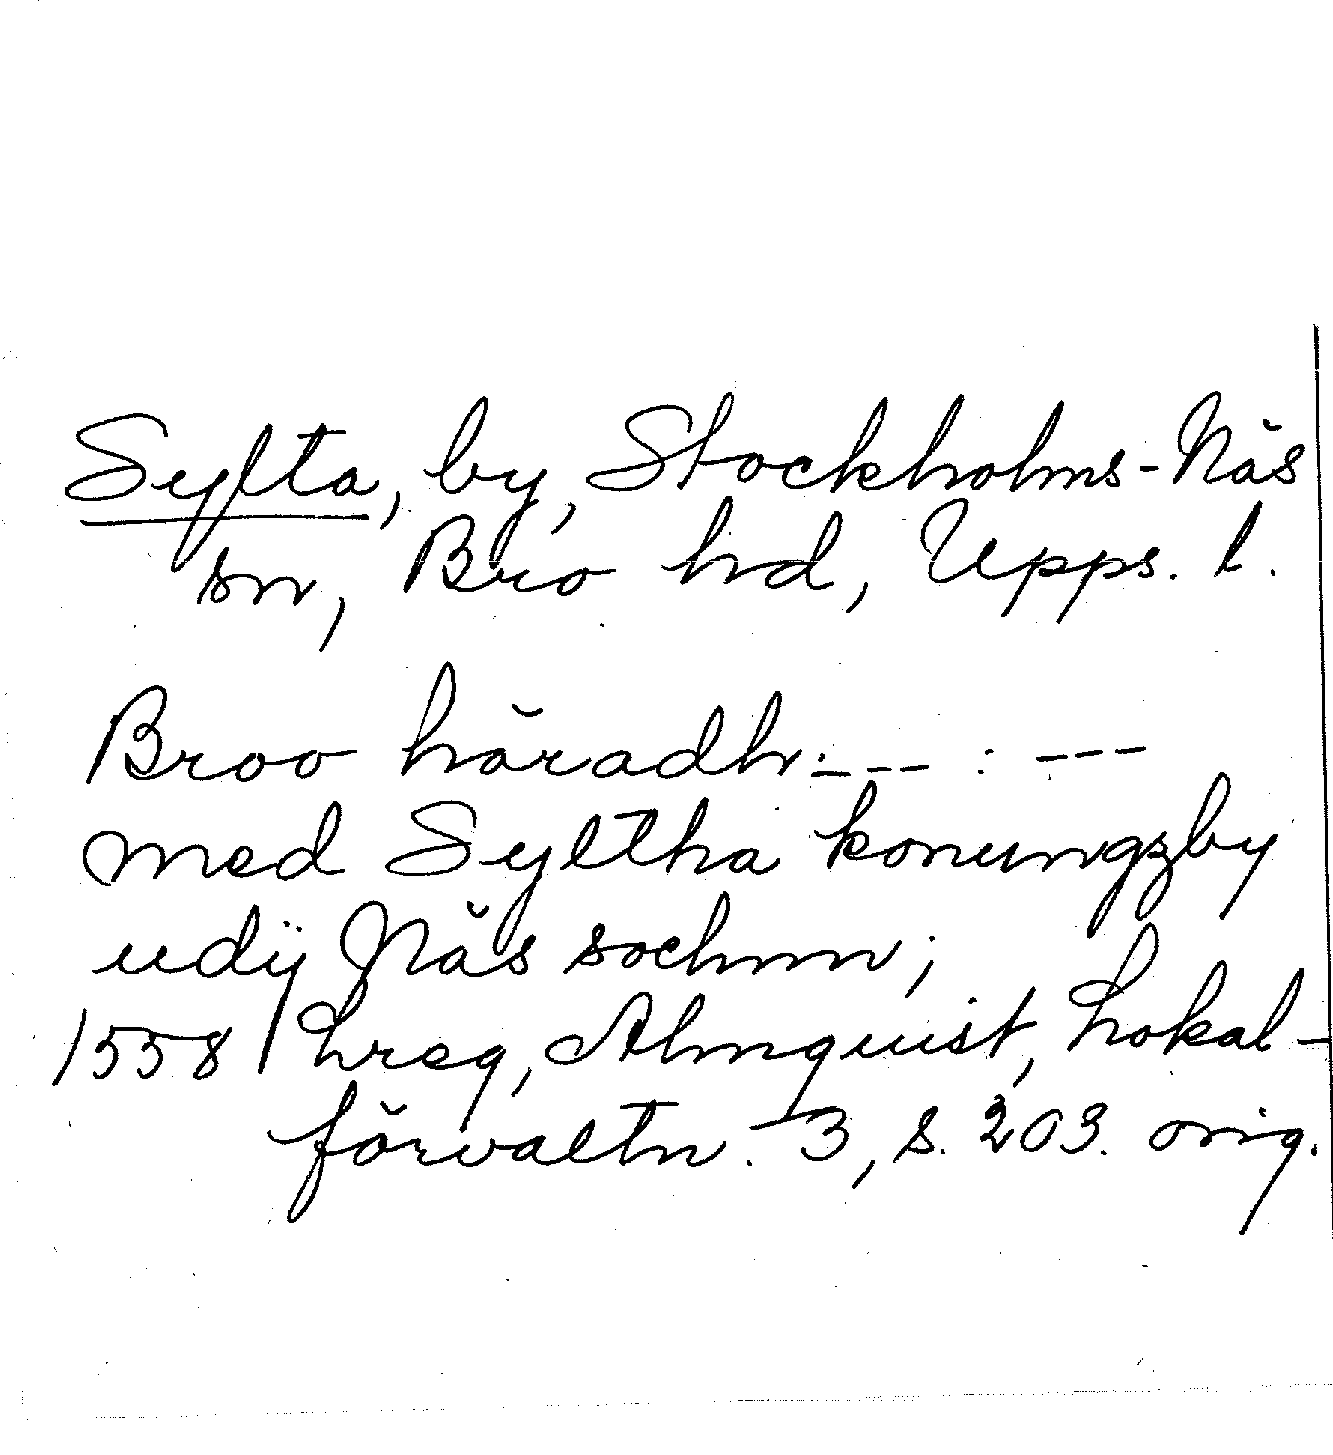 Sylta, by, Stockholms-Näs
sn, Bro hd, Upps. l.
Broo häradh: --- : ---
med Syltha konungzby
udÿ Näs sochnn;
1558 Lreg, Almquist, Lokal-
förvaltn. 3, s. 203. orig.